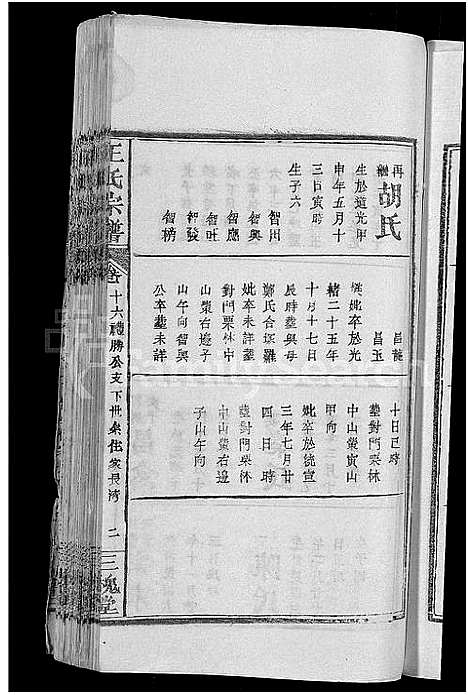 再繼胡氏
生於道光甲
申年五月十
三日寅時
生子六
智田
智興
智應
智旺
智發
智榜
昌龍
昌玉
妣卒於光
緒二十五年
十月十七日
辰時塟與母
鄭氏合塚羅
妣卒未詳塟
對門栗林中
山塋右邊子
山午向智興
公卒塟未詳
十日巳時
塟對門栗林
中山塋寅山
甲向
妣卒於統宣
三年七月廿
四日時
塟對門栗林
中山塋右邊
子山午向
王氏宗譜
卷十六禮勝公支下世系住家長湾
二
三槐堂